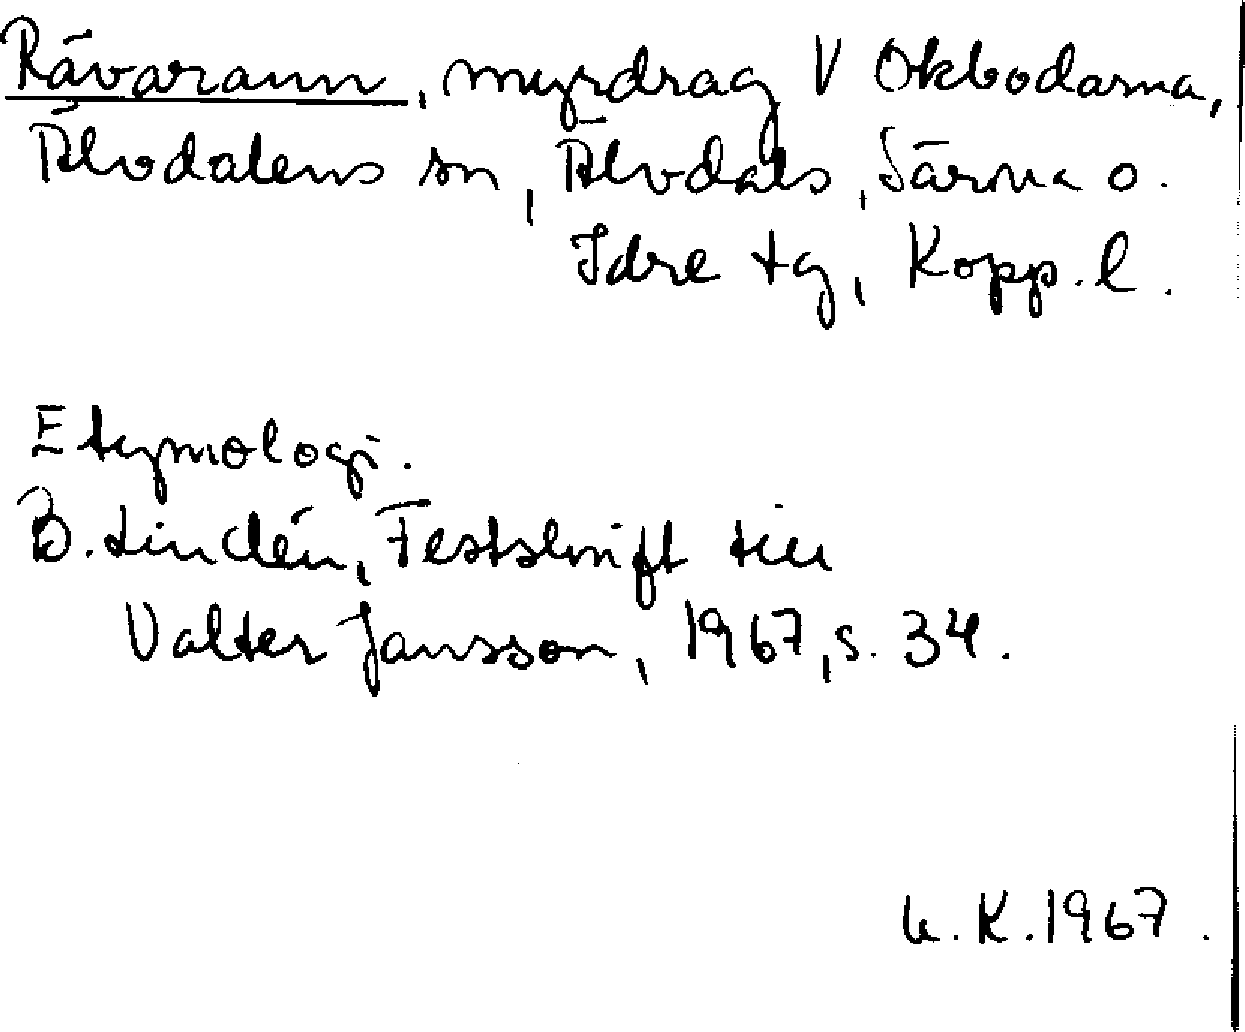 Rävarann, myrdrag V Okbodarna,
Älvdalens sn, Älvdals, Särna o.
Idre tg, Kopp. l.
Etymologi.
B. Lindén, Festskrift till
Valter Jansson, 1967, s. 34.
K. 1967.